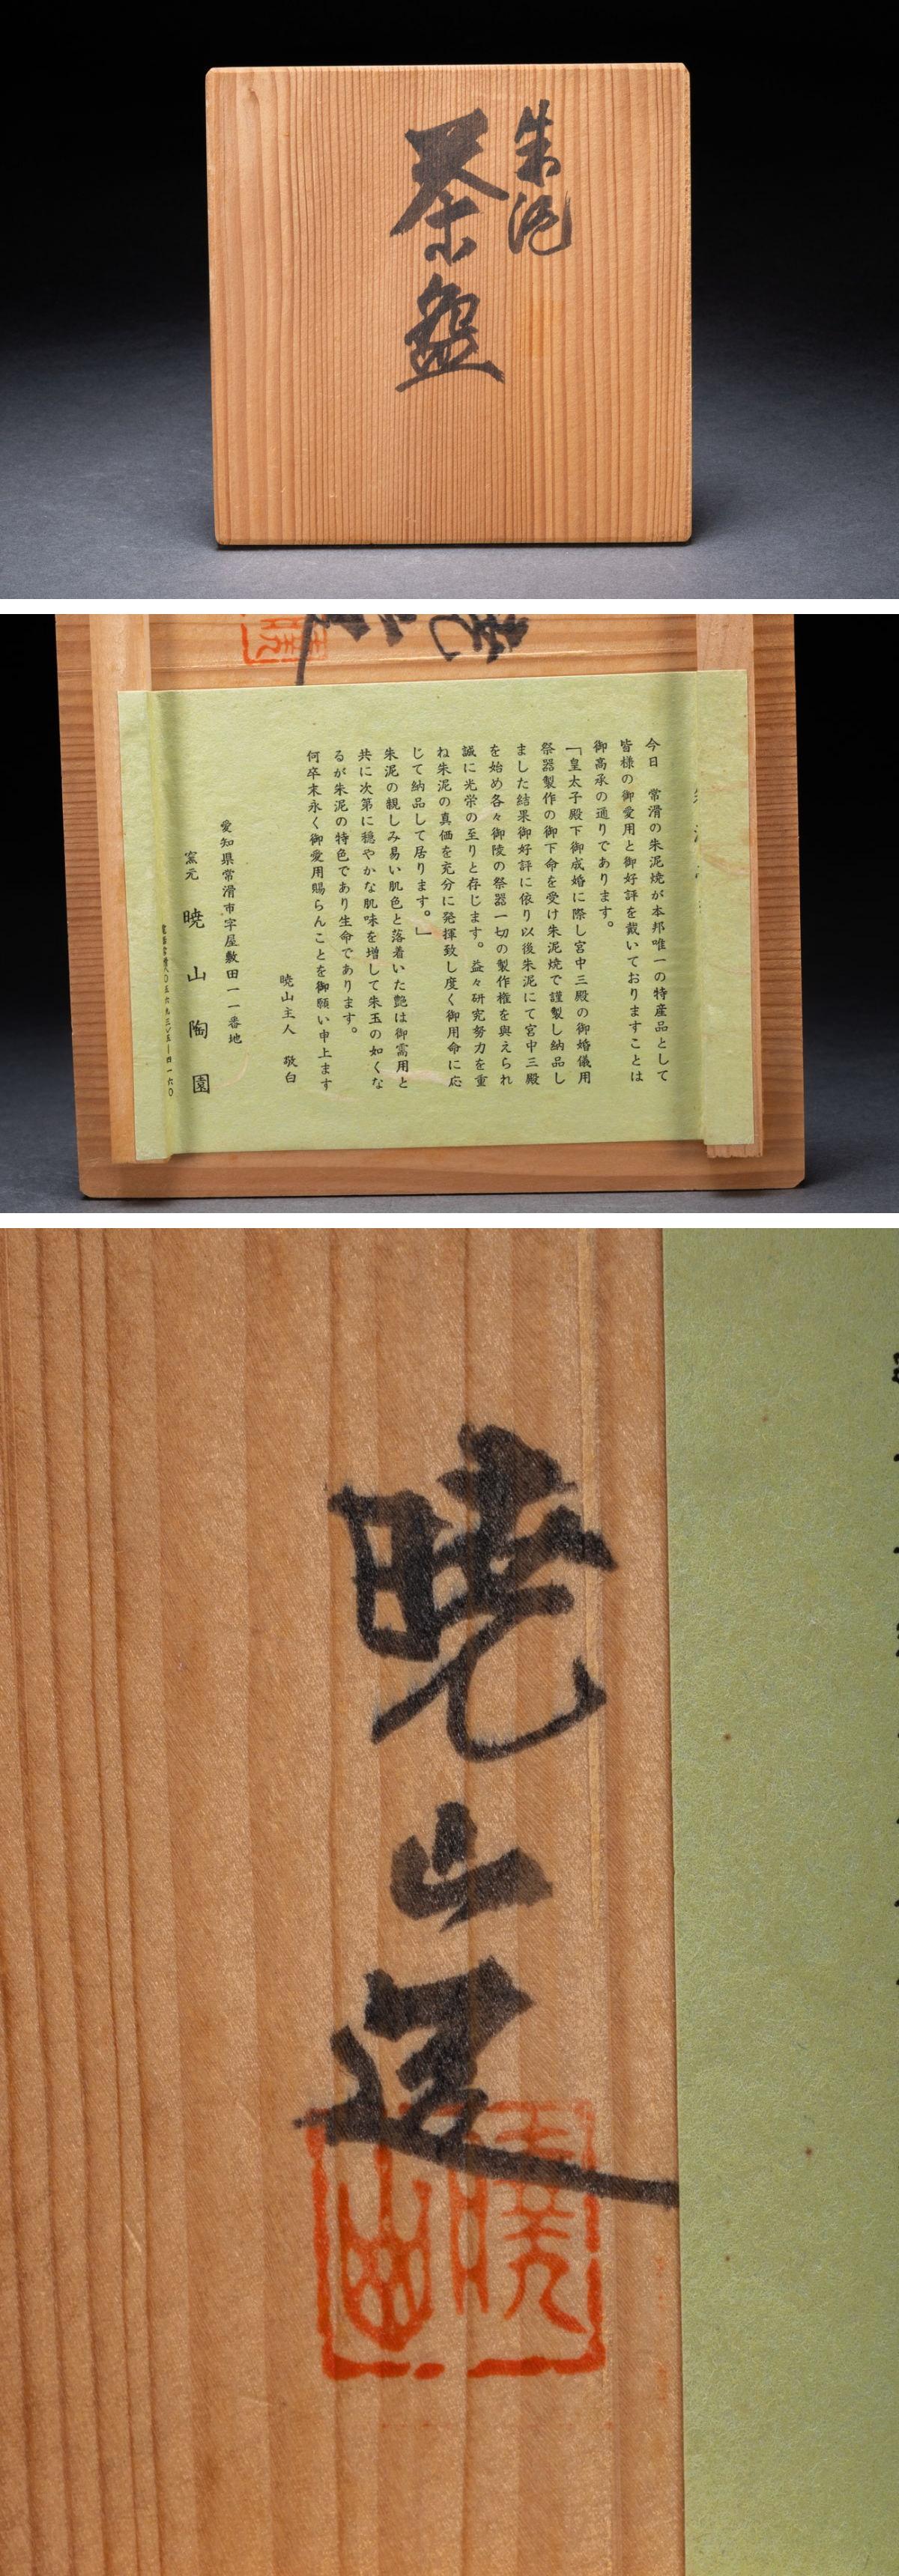 朱泥
茶盌
今日　常滑の朱泥焼が本邦唯一の特産品として
皆様の御愛用と御好評を戴いておりますことは
御高承の通りであります。
「皇太子殿下御成婚に際し宮中三殿の御婚儀用
祭器製作の御下命を受け朱泥焼で謹製し納品し
ました結果御好評に依り以後朱泥にて宮中三殿
を始め各々御陵の祭器一切の製作権を与えられ
誠に光栄の至りと存じます。益々研究努力を重
ね朱泥の真価を充分に発揮致し度く御用命に応
じて納品して居ります。」
朱泥の親しみ易い肌色と落着いた艶は御需用と
共に次第に穏やかな肌味を増して朱玉の如くな
るが朱泥の特色であり生命であります。
何卒末永く御愛用賜らんことを御願い申上ます
暁山主人　敬白
愛知県常滑市字屋敷田一一番地
窯元　暁山陶園
暁山造
暁山